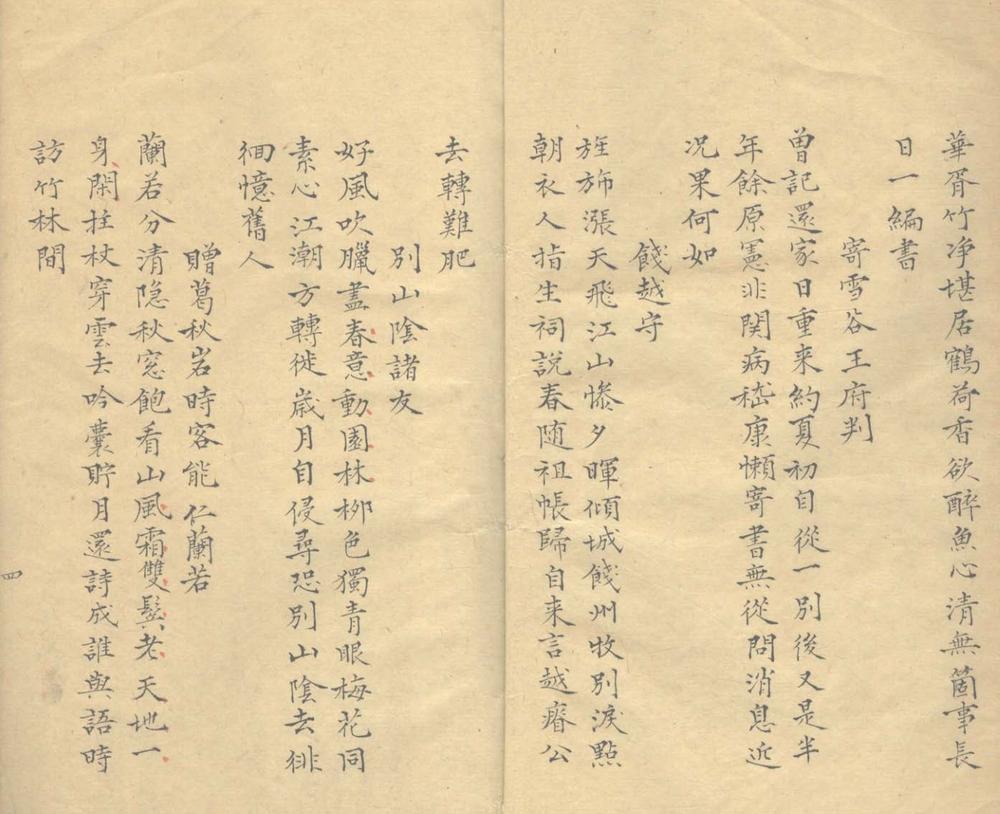 華胥竹净堪居鶴荷香欲醉魚心清無箇事長
日一編書
寄雪谷王府判
曽記還家日重来約夏初自從一別後又是半
年餘原憲非関病嵇康懶寄書無從問消息近
况果何如
餞越守
旌斾漲天飛江山惨夕暉傾城餞州牧別淚點
朝衣人指生祠說春随祖帳歸自来言越瘠公
去轉難肥
別山陰諸友
好風吹臘盡春意動園林栁色獨青眼梅花同
素心江潮方轉徙歳月自侵尋恐別山陰去徘
徊憶舊人
贈葛秋岩時客能仁蘭若
蘭若分清隐秋窓飽看山風霜雙鬂老天地一
身閑拄杖穿雲去吟囊貯月還詩成誰與語時
訪竹林間
四